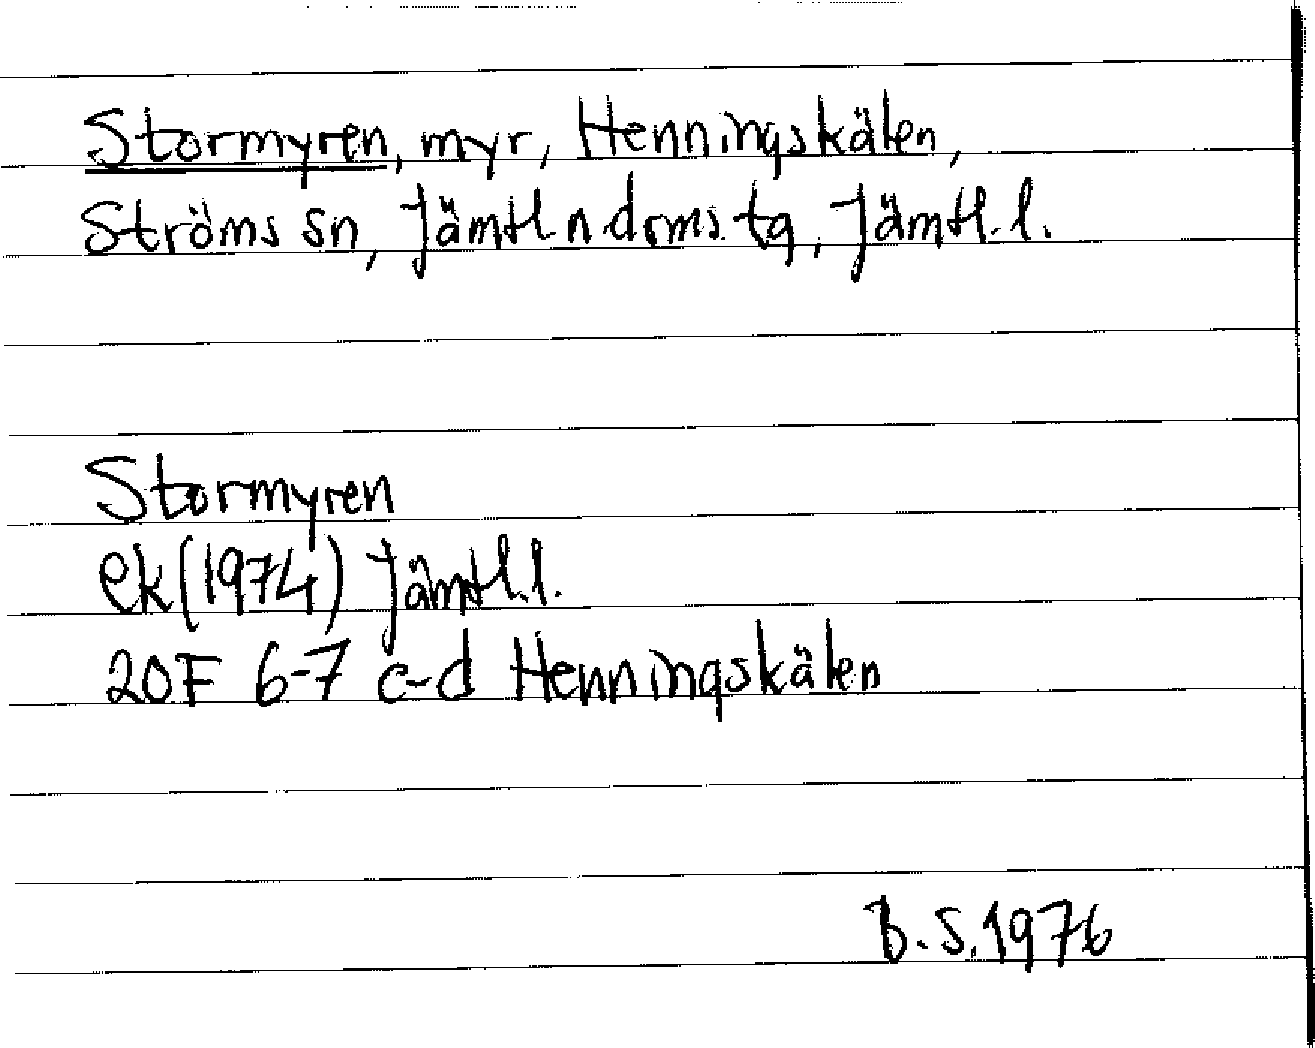 Stormyren, myr, Henningskälen,
Ströms sn, Jämtl n doms. tg, Jämtl. l.
Stormyren
ek (1974) Jämtl. l.
20F 6-7 c-d Henningskälen
B. S. 1976